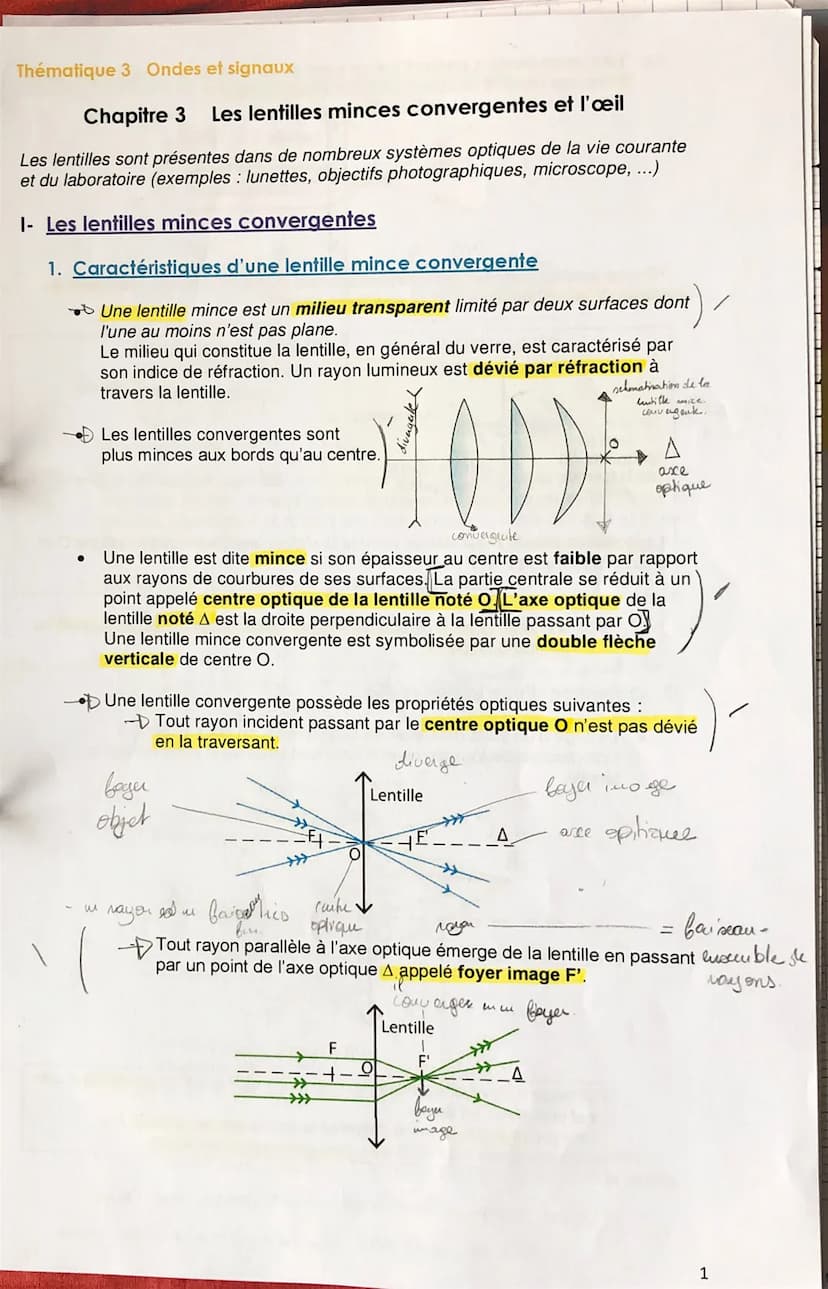 Thématique 3 Ondes et signaux
Chapitre 3 Les lentilles minces convergentes et l'œil
Les lentilles sont présentes dans de nombreux systèmes optiques de la vie courante
et du laboratoire (exemples : lunettes, objectifs photographiques, microscope, ...)
I- Les lentilles minces convergentes
1. Caractéristiques d'une lentille mince convergente
Une lentille mince est un milieu transparent limité par deux surfaces dont
l'une au moins n'est pas plane.
Le milieu qui constitue la lentille, en général du verre, est caractérisé par
son indice de réfraction. Un rayon lumineux est dévié par réfraction à
travers la lentille.
schématisation de la
lentille mince
convergente.
divergente
Les lentilles convergentes sont
plus minces aux bords qu'au centre.
O
Δ
axe
optique
convergente
• Une lentille est dite mince si son épaisseur au centre est faible par rapport
aux rayons de courbures de ses surfaces. [La partie centrale se réduit à un
point appelé centre optique de la lentille noté O.] [L'axe optique de la
lentille noté Δ est la droite perpendiculaire à la lentille passant par O.]
Une lentille mince convergente est symbolisée par une double flèche
verticale de centre O.
Une lentille convergente possède les propriétés optiques suivantes :
Tout rayon incident passant par le centre optique O n'est pas dévié
en la traversant.
diverge
foyer
objet
Lentille
foyer image
F
F'
Δ
axe optique
O
- un rayon est un faisceau très
fin.
centre
optique
rayon = faisceau -
ensemble de
rayons.
Tout rayon parallèle à l'axe optique émerge de la lentille en passant
par un point de l'axe optique Δ appelé foyer image F'.
il
converge en un foyer.
Lentille
F
O
F'
Δ
foyer
image
1